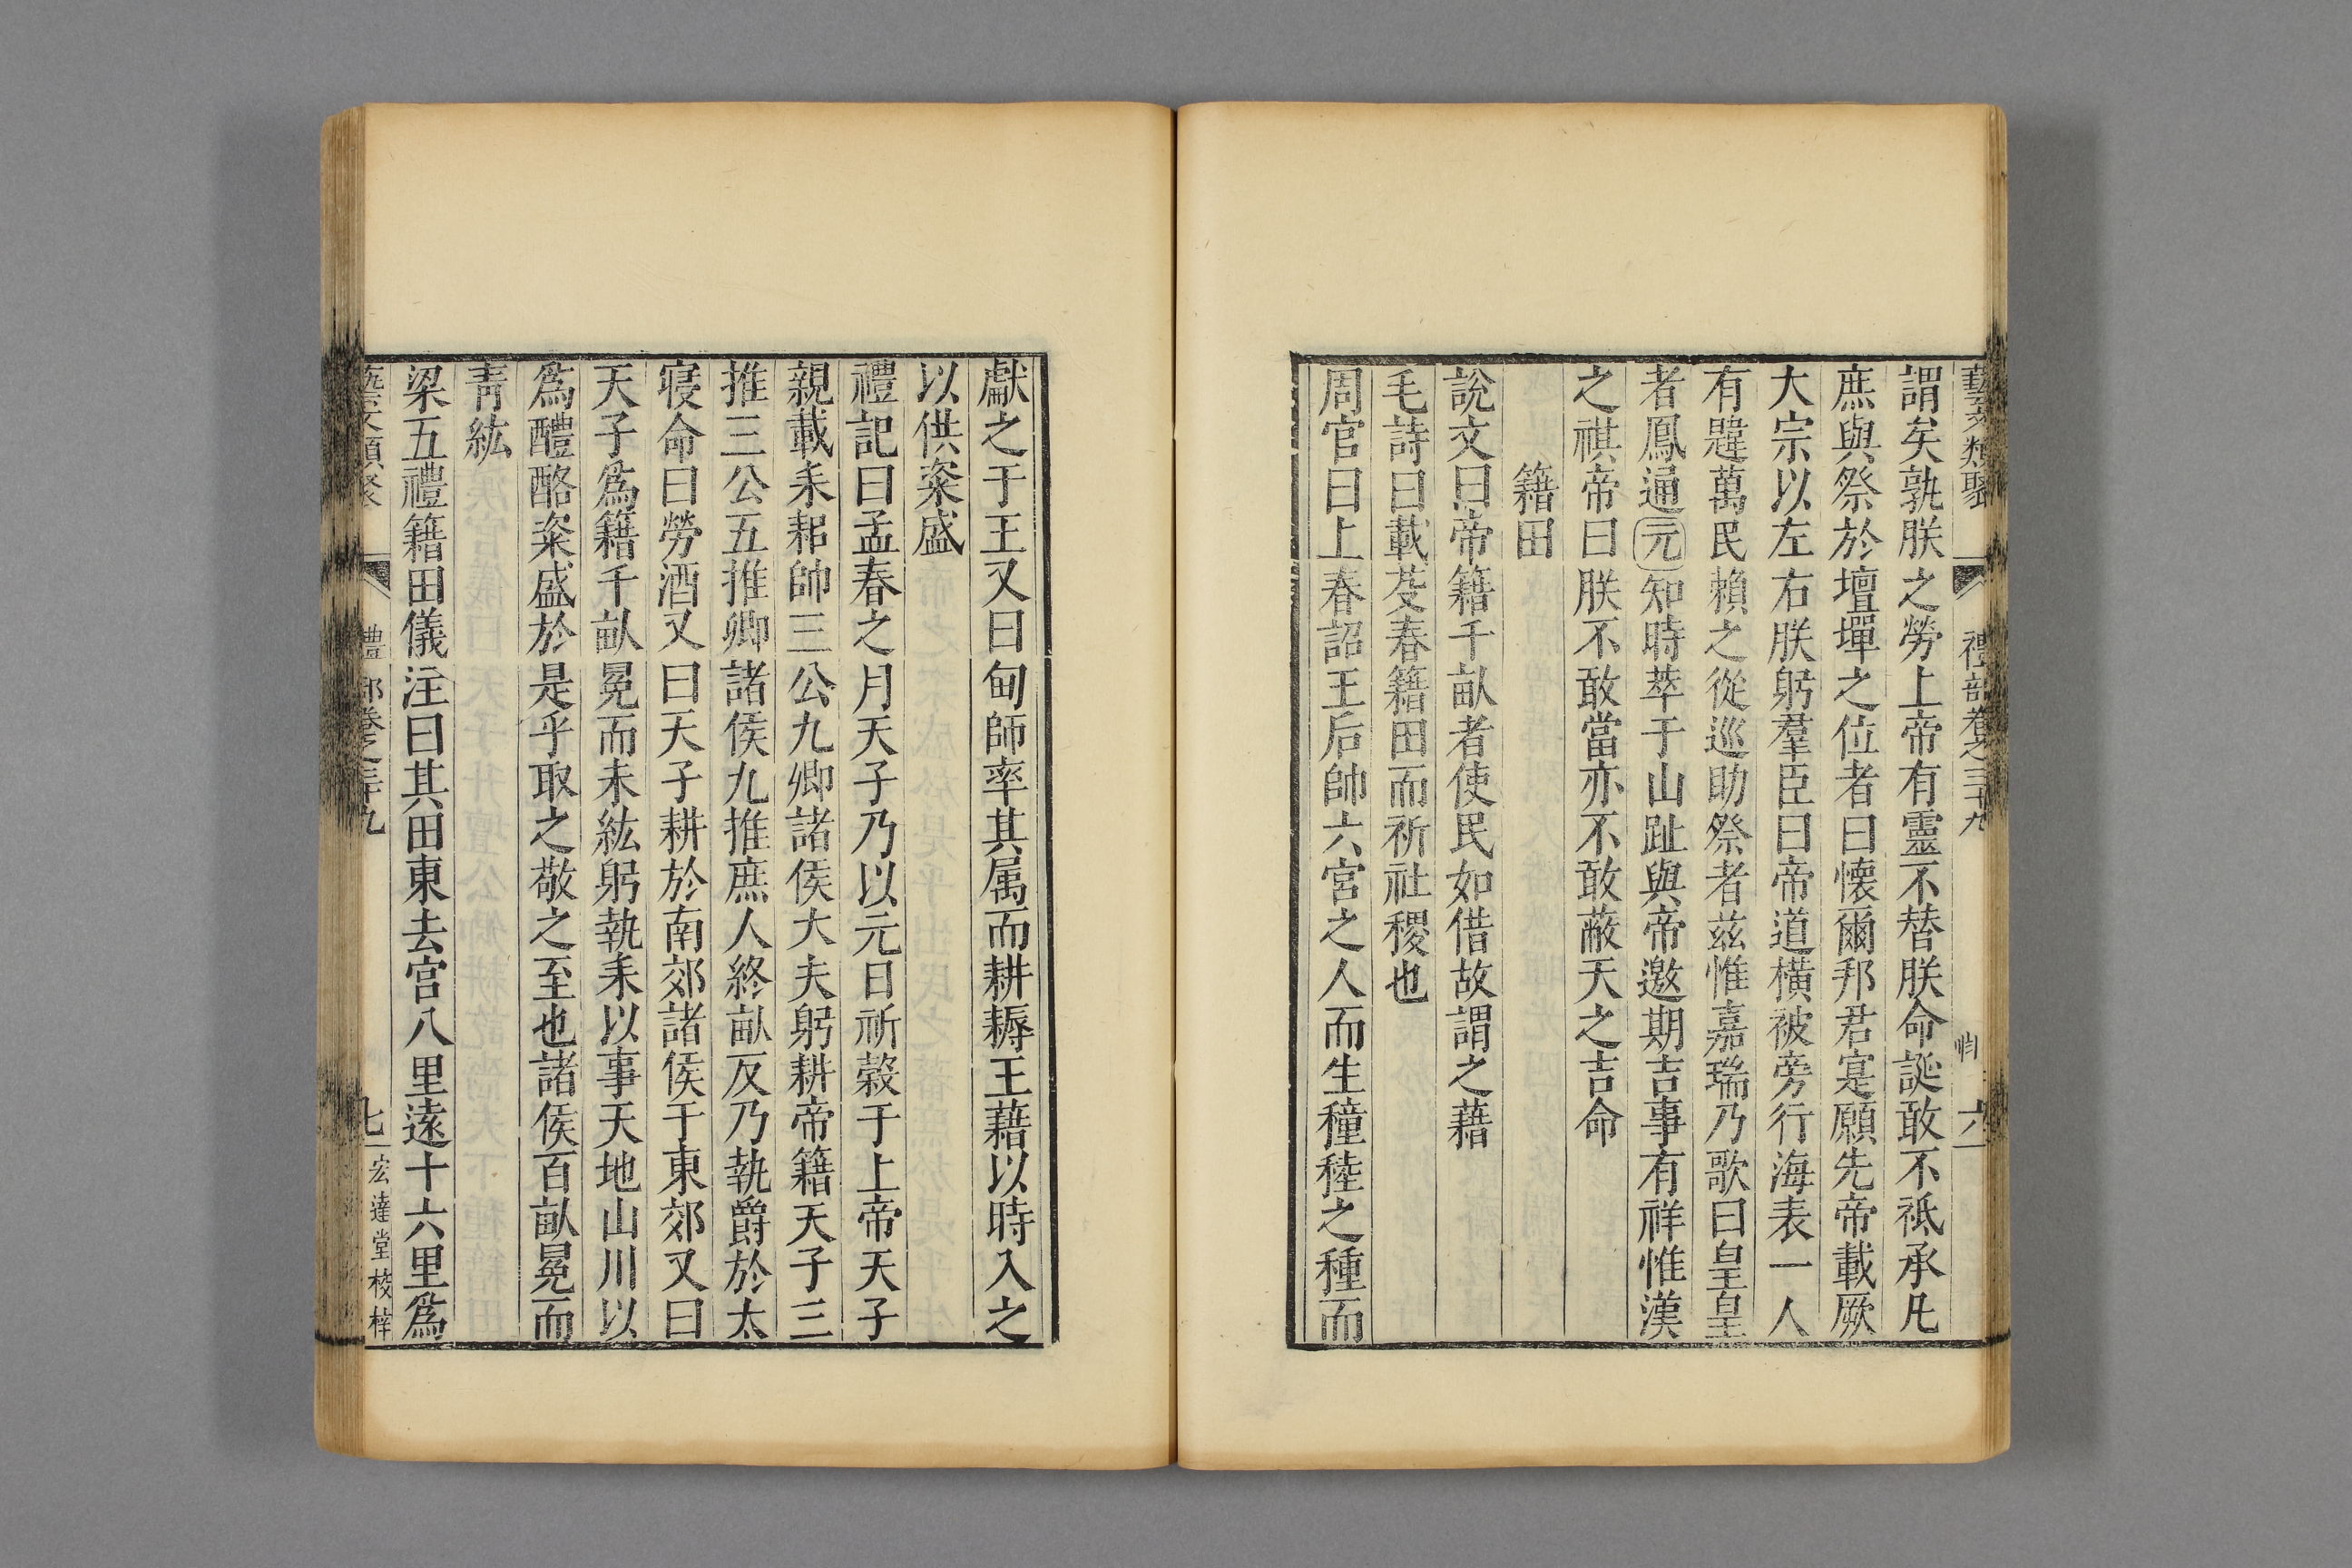 藝文類聚 禮部卷之三十九 六
謂矣孰朕之勞上帝有靈不替朕命誕敢不祗承凡
庶與祭於壇墠之位者曰懷爾邦君寔願先帝載厥
大宗以左右朕躬羣臣曰帝道橫被旁行海表一人
有韙萬民賴之從巡助祭者茲惟嘉瑞乃歌曰皇皇
者鳳通元知時萃于山趾與帝邀期吉事有祥惟漢
之祺帝曰朕不敢當亦不敢蔽天之吉命
籍田
說文曰帝籍千畝者使民如借故謂之藉
毛詩曰載芟春籍田而祈社稷也
周官曰上春詔王后帥六宮之人而生穜稑之種而
獻之于王又曰甸師率其属而耕耨王藉以時入之
以供粢盛
禮記曰孟春之月天子乃以元日祈穀于上帝天子
親載耒耜帥三公九卿諸侯大夫躬耕帝籍天子三
推三公五推卿諸侯九推庶人終畝反乃執爵於太
寑命曰勞酒又曰天子耕於南郊諸侯于東郊又曰
天子爲籍千畝冕而朱紘躬執耒以事天地山川以
爲醴酪粢盛於是乎取之敬之至也諸侯百畝冕而
靑紘
梁五禮籍田儀注曰其田東去宫八里遠十六里爲
藝文類聚 禮部卷之三十九 七 宏達堂棱梓